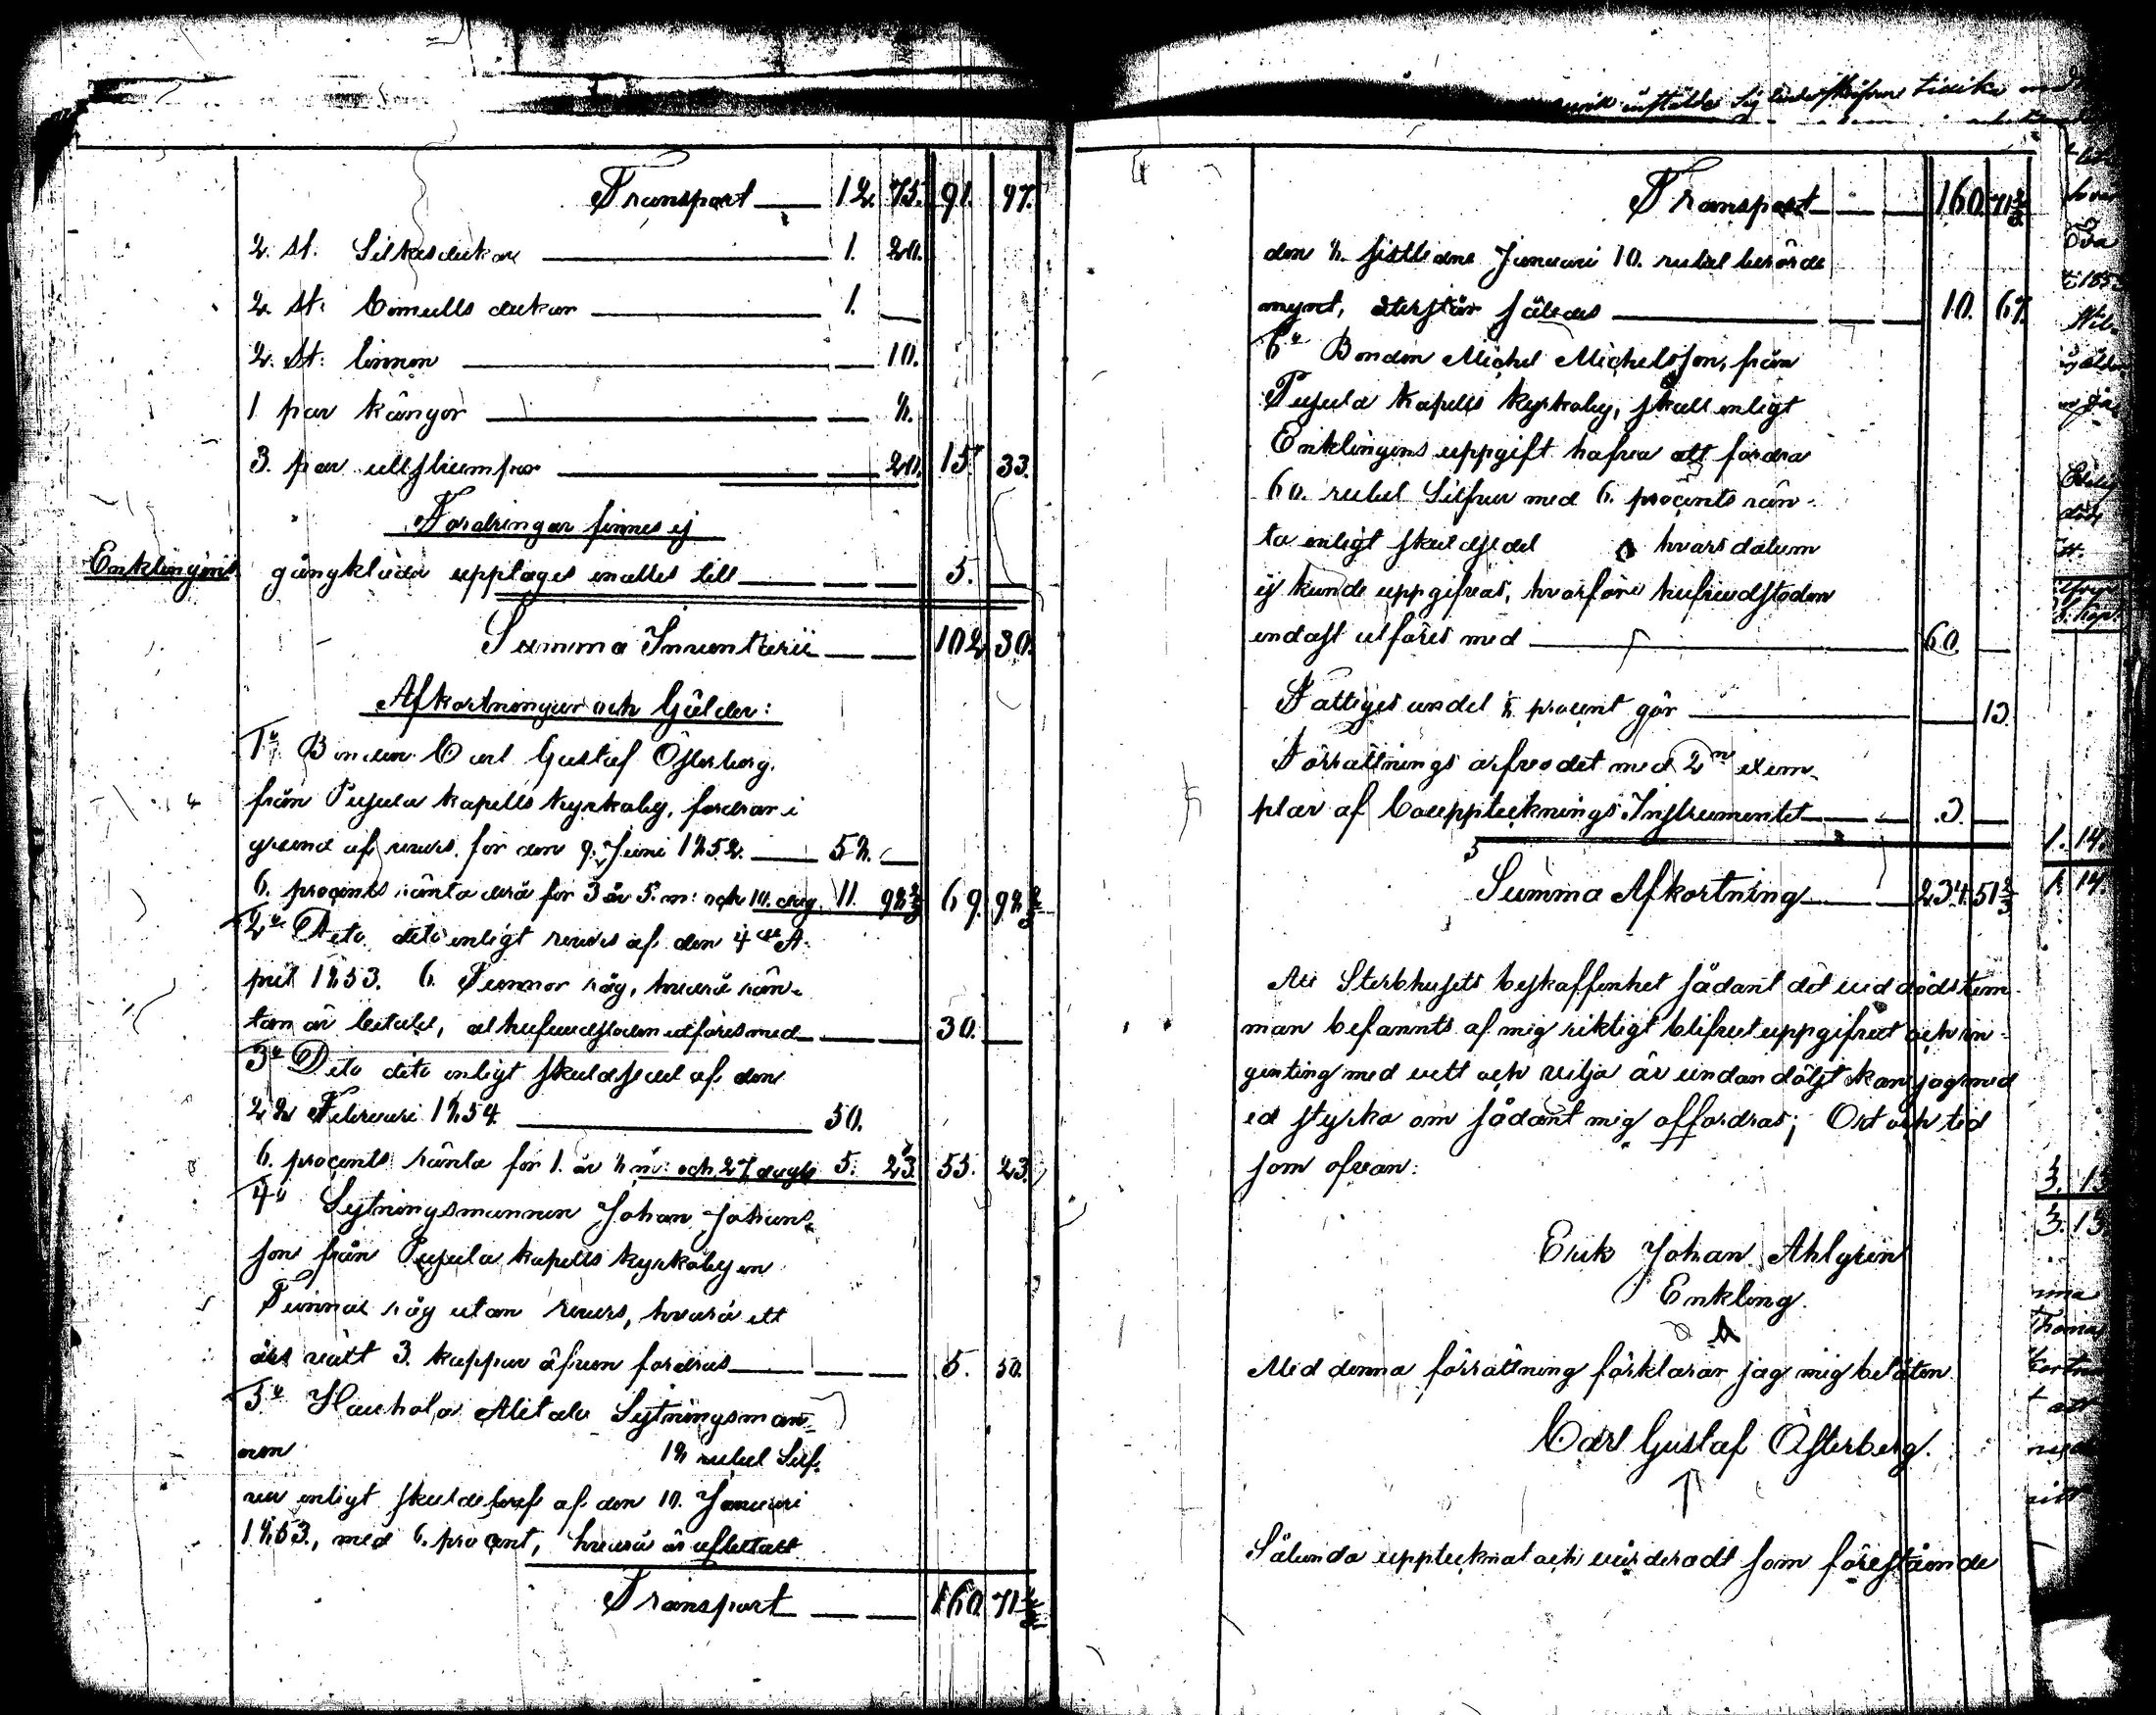 Transport 12. 75. 91. 97.
2. st. Silkesdukar 1. 20.
2. st. Bomulls dukar 1. —
2. st: linnen — 10.
1 par kängor — 8.
3. par ullstrumpor — 20. 15. 33.
Fordringar finnes ej
Enklingens gångkläder upptages endast till 5. —
Summa Inventarii 102. 30.
Afkortningar och Gälder:
1o Bonden Carl Gustaf Österberg,
från Pusula kapells kyrkoby, fordrar i
grund af revers för den 9. Juni 1852. 58. —
6. procents ränta derå för 3 år 5. m: och 10. dag. 11. 92 2/3 69. 92 2/3
2o Dito dito enligt revers af den 4de A-
pril 1853. 6. Tunnor råg, hvarå rän-
tan är betald, at hufvudstolen utföres med 30. —
3o Dito dito enligt skuldsedel af den
28 Februari 1854. 50.
6. procents ränta för 1. år 8 m: och 27 dagar 5. 23. 55. 23.
4o Sytningsmannen Johan Johans-
son från Pusula kapells kyrkoby en
Tunna råg utan revers, hvarå ett
års växt 3. kappar äfven fordras 5. 50.
5o Hauhola Alitalo Sytningsman-
nen 18 rubel Silf-
ver enligt skuldebref af den 10. Januari
1853., med 6. procent, hvarå är afbetalt
Transport 160. 71 2/3
Transport 160. 71 2/3
den 8. sistledne Januari 10. rubel berörde
mynt, återstår således 10. 67.
6o Bonden Michel Michelsson, från
Pusula kapells kyrkoby, skall enligt
Enklingens uppgift hafva att fordra
60. rubel Silfver med 6. procents rän-
ta enligt skuldsedel hvars datum
ej kunde uppgifvas, hvarföre hufvudstolen
endast utföres med 60. —
Fattiges andel 1/8 procent gör — 13.
Förrättnings arfvodet med 2ne exem-
plar af Bouppteknings Instrumentet 3. —
Summa Afkortning 234. 51 2/3
At Sterbhusets beskaffenhet sådant det vid dödstim-
man befannts af mig riktigt blifvet uppgifvet och in-
genting med vett och vilja är undandöljt kan jag med
ed styrka om sådant mig affordras; Ort och tid
som ofvan:
Erik Johan Ahlgren
Enkling.
Med denna förrättning förklarar jag mig belåten
Carl Gustaf Österberg.
Sålunda upptecknat och värderadt som föreståmde